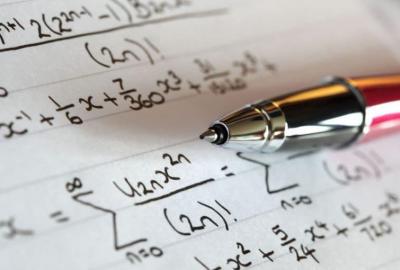 n+1 2(2^{2n-1}-1)B_{2n}x
(2n)!
x^{-1} + \frac{1}{6}x + \frac{7}{360}x^3 +
x = \sum_{n=0}^{\infty} \frac{U_{2n}x^{2n}}{(2n)!} = \sum_{n=0} (2n)!
\frac{1}{2}x^2 + \frac{5}{24}x^4 + \frac{61}{720}x^6